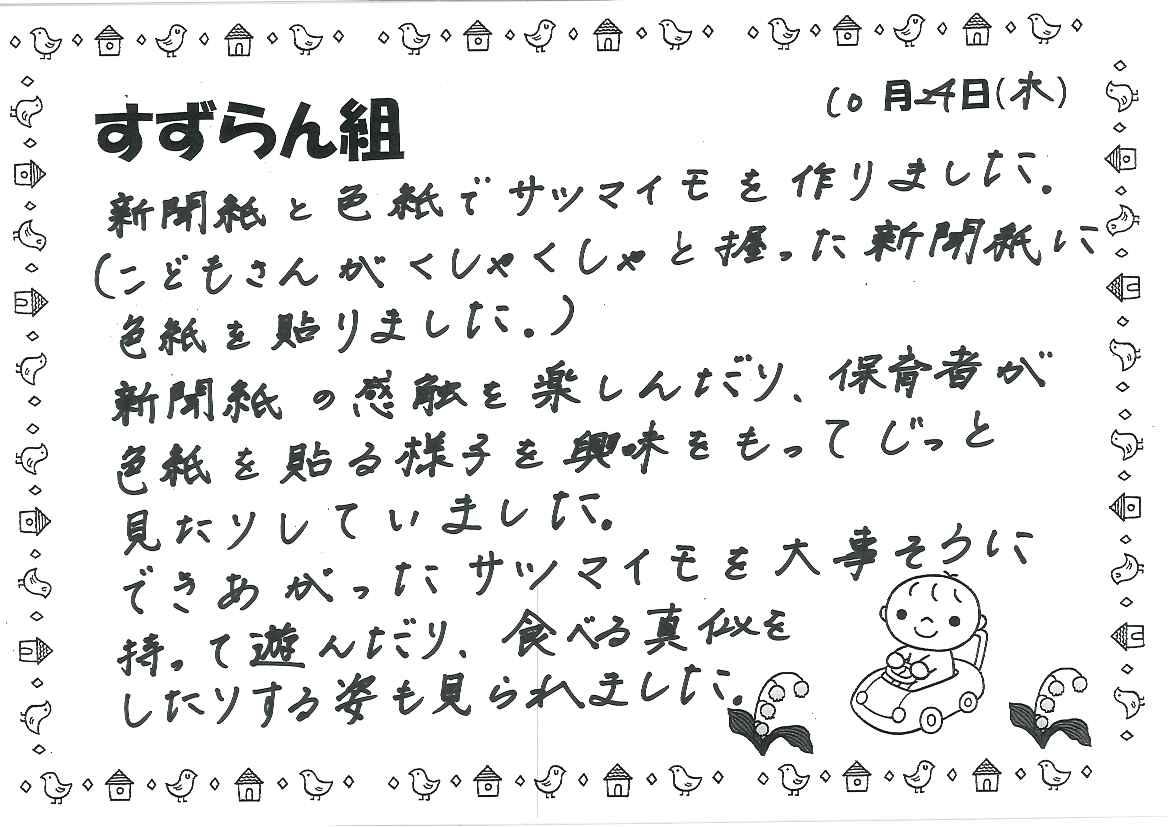 10月24日(水)
すずらん組
新聞紙と色紙でサツマイモを作りました。
(こどもさんがくしゃくしゃと握った新聞紙に
色紙を貼りました。)
新聞紙の感触を楽しんだり、保育者が
色紙を貼る様子を興味をもってじっと
見たりしていました。
できあがったサツマイモを大事そうに
持って遊んだり、食べる真似を
したりする姿も見られました。